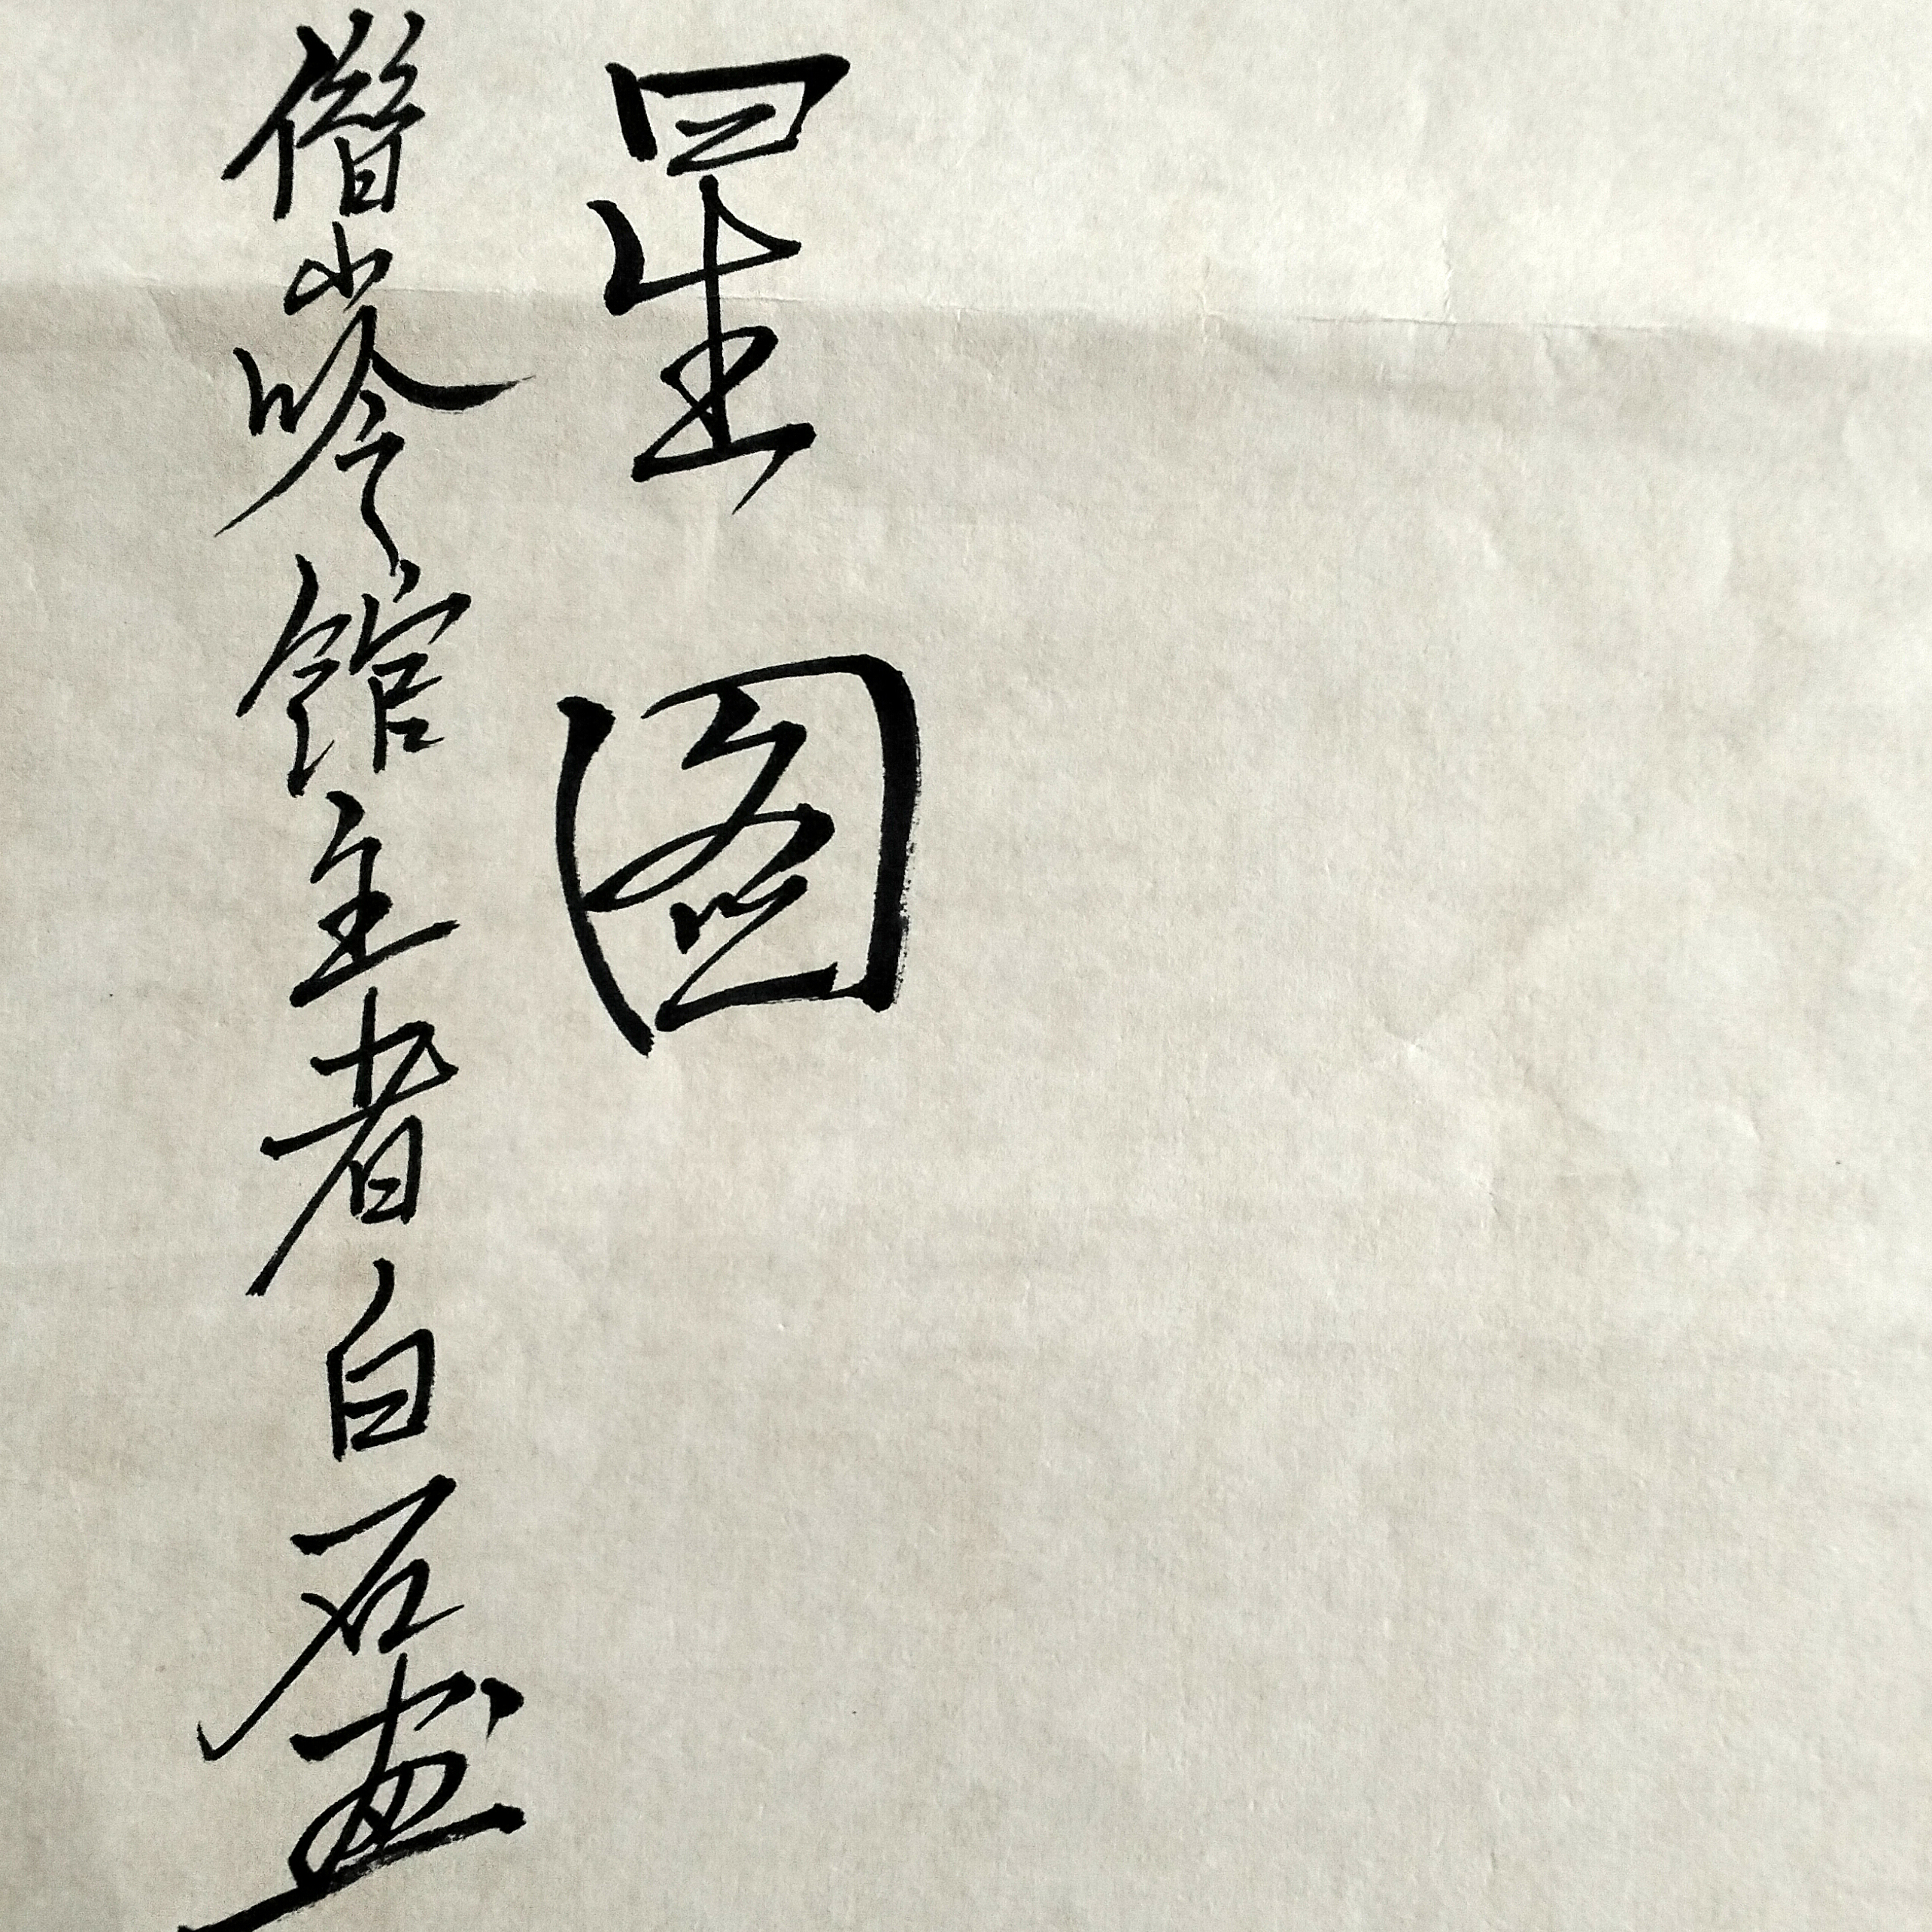 星图
借山吟館主者白石畫